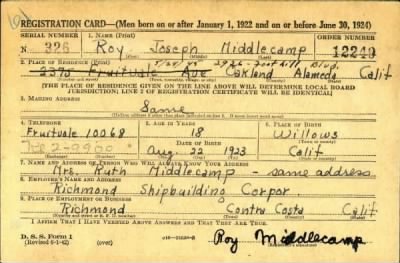 REGISTRATION CARD—(Men born on or after January 1, 1922 and on or before June 30, 1924)
SERIAL NUMBER 1. NAME (Print) ORDER NUMBER
N 326 Roy Joseph Middlecamp 12240
2. PLACE OF RESIDENCE (Print) 3926 Foothill Blvd.
2373 Fruitvale Ave Oakland Alameda Calif
[THE PLACE OF RESIDENCE GIVEN ON THE LINE ABOVE WILL DETERMINE LOCAL BOARD
JURISDICTION; LINE 2 OF REGISTRATION CERTIFICATE WILL BE IDENTICAL]
3. MAILING ADDRESS
Same
4. TELEPHONE 5. AGE IN YEARS 6. PLACE OF BIRTH
Fruitvale 1006 8 18 Willows
DATE OF BIRTH
Aug 22 1923 Calif
7. NAME AND ADDRESS OF PERSON WHO WILL ALWAYS KNOW YOUR ADDRESS
Mrs. Ruth Middlecamp - same address
8. EMPLOYER'S NAME AND ADDRESS
Richmond Shipbuilding Corpor
9. PLACE OF EMPLOYMENT OR BUSINESS
Richmond Contra Costa Calif
I AFFIRM THAT I HAVE VERIFIED ABOVE ANSWERS AND THAT THEY ARE TRUE.
D. S. S. Form 1
(Revised 6-1-42) (over) Roy Middlecamp